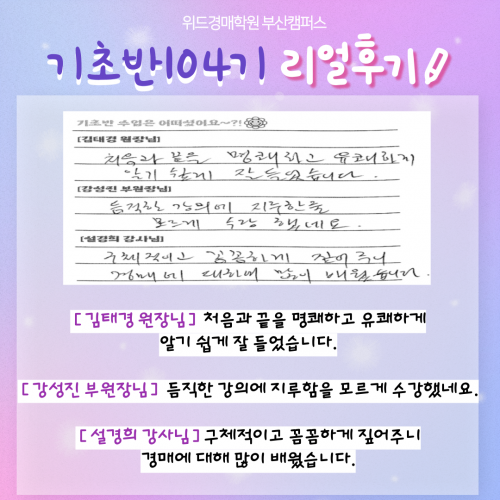 위드경매학원 부산캠퍼스
기초반104기 리얼후기
기초반 수업은 어떠셨어요~?!
[김태경 원장님]
처음과 끝을 명쾌하고 유쾌하게
알기 쉽게 잘 들었습니다.
[강성진 부원장님]
듬직한 강의에 지루함을
모르게 수강 했네요.
[설경희 강사님]
구체적이고 꼼꼼하게 짚어주니
경매에 대하여 많이 배웠습니다.
[김태경 원장님] 처음과 끝을 명쾌하고 유쾌하게
알기 쉽게 잘 들었습니다.
[강성진 부원장님] 듬직한 강의에 지루함을 모르게 수강했네요.
[설경희 강사님] 구체적이고 꼼꼼하게 짚어주니
경매에 대해 많이 배웠습니다.